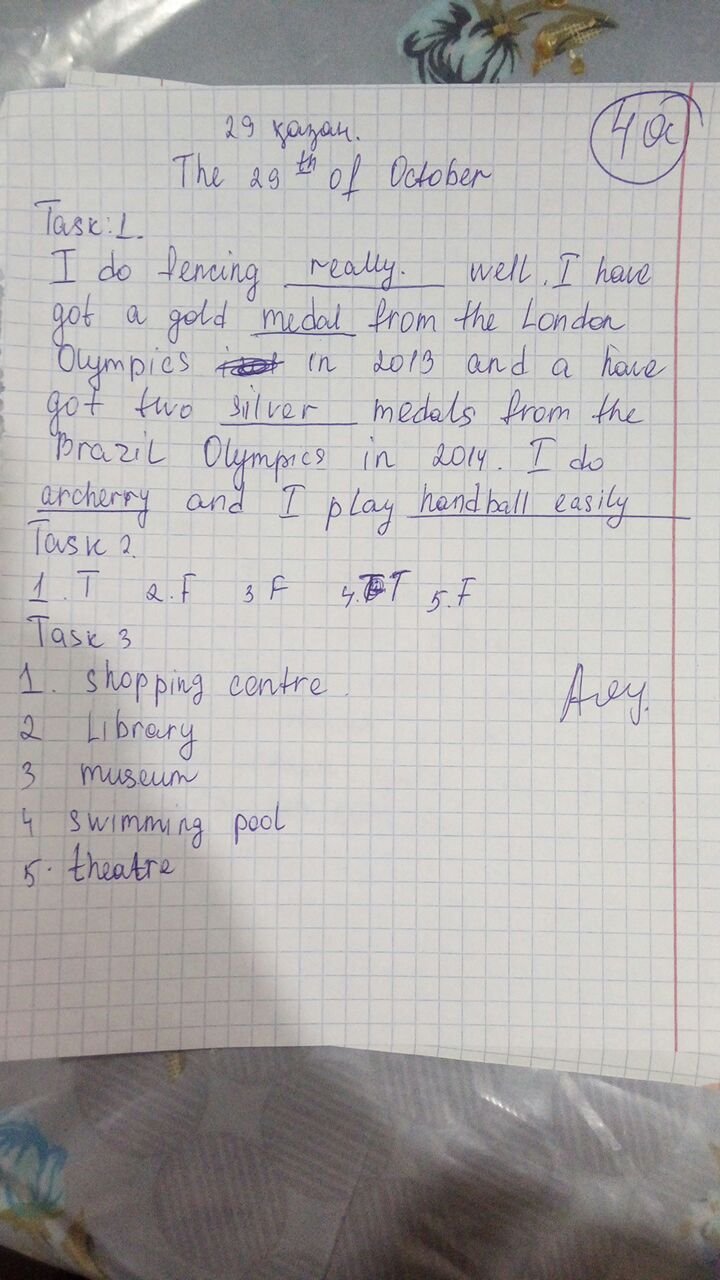 29 қазан.
4 а
The 29th of October
Task: 1.
I do fencing really. well. I have
got a gold medal from the London
Olympics in 2013 and a have
got two silver medals from the
Brazil Olympics in 2014. I do
archerry and I play handball easily
Task 2.
1. T 2. F 3 F 4. T 5. F
Task 3
1. shopping centre.
2 Library
3 museum
4 swimming pool
5. theatre